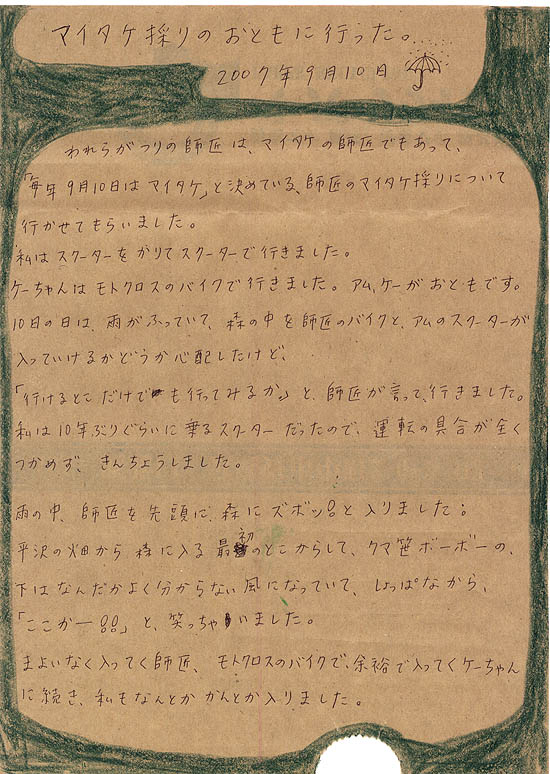 マイタケ採りのおともに行った。
2007年9月10日
われらがつりの師匠は、マイタケの師匠でもあって、
「毎年9月10日はマイタケ」と決めている、師匠のマイタケ採りについて
行かせてもらいました。
私はスクーターをかりてスクーターで行きました。
ケーちゃんはモトクロスのバイクで行きました。アム、ケーがおともです。
10日の日は、雨がふっていて、森の中を師匠のバイクと、アムのスクーターが
入っていけるかどうか心配したけど、
「行けるとこだけでも行ってみるか」と、師匠が言って、行きました。
私は10年ぶりぐらいに乗るスクーターだったので、運転の具合が全く
つかめず、きんちょうしました。
雨の中、師匠を先頭に、森にズボッ!!と入りました。
平沢の畑から森に入る最初のとこからして、クマ笹ボーボーの、
下はなんだかよく分からない風になっていて、しょっぱなから、
「ここかー!!」と、笑っちゃいました。
まよいなく入ってく師匠、モトクロスのバイクで、余裕で入ってくケーちゃん
に続き、私もなんとかかんとか入りました。